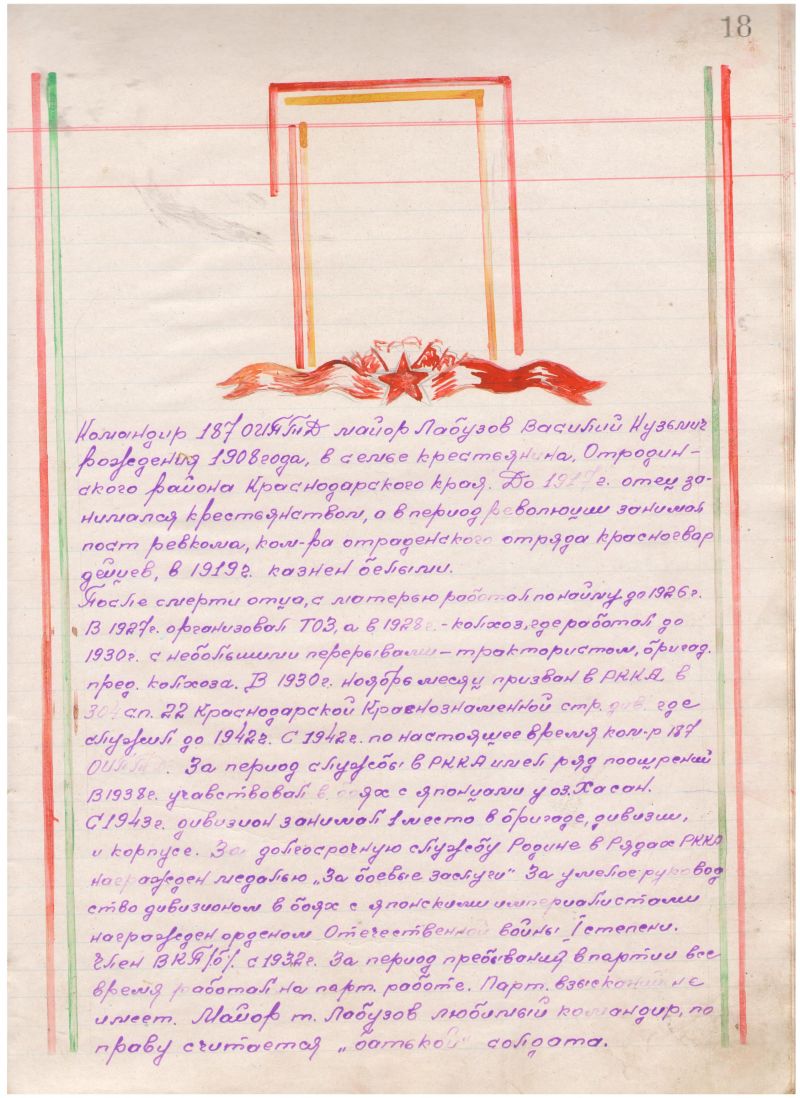 18
Командир 187 ОИПТД майор Лабузов Василий Кузьмич
рождения 1908 года, в семье крестьянина, Отродин-
ского района Краснодарского края. До 1917 г. отец за-
нимался крестьянством, а в период революции занимал
пост ревкома, ком-ра отраденского отряда красногвар
дейцев, в 1919 г. казнен белыми.
После смерти отца, с матерью работал по найму до 1926 г.
В 1927 г. организовал ТОЗ, а в 1928 г. - колхоз, где работал до
1930 г. с небольшими перерывами – трактористом, бригад.
пред. колхоза. В 1930 г. ноябрь месяц призван в РККА в
304 сп. 22 Краснодарской Краснознаменной стр. див. где
служил до 1942 г. С 1942 г. по настоящее время ком-р 187
ОИПТД. За период службы в РККА имел ряд поощрений
В 1938 г. учавствовал в боях с японцами у оз. Хасан.
С 1943 г. дивизион занимал 1 место в бригаде, дивизии,
и корпусе. За долгосрочную службу Родине в Рядах РККА
награжден медалью „За боевые заслуги" За умелое руковод
ство дивизионом в боях с японскими империалистами
награжден орденом Отечественной войны I степени.
Член ВКП/б/. с 1932 г. За период пребывания в партии все
время работал на парт. работе. Парт. взысканий не
имеет. Майор т. Лабузов любимый командир, по
праву считается „батькой" солдата.